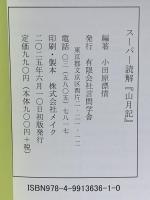 スーパー読解『山月記』
編著 小田原漂情
発行 有限会社言問学舎
東京都文京区西片二-二一-一二
電話 〇三(五八〇五)七八一七
印刷・製本 株式会社メイク
二〇二五年六月一〇日初版発行
定価九九〇円(本体九〇〇円+税)
ISBN978-4-9913636-1-0